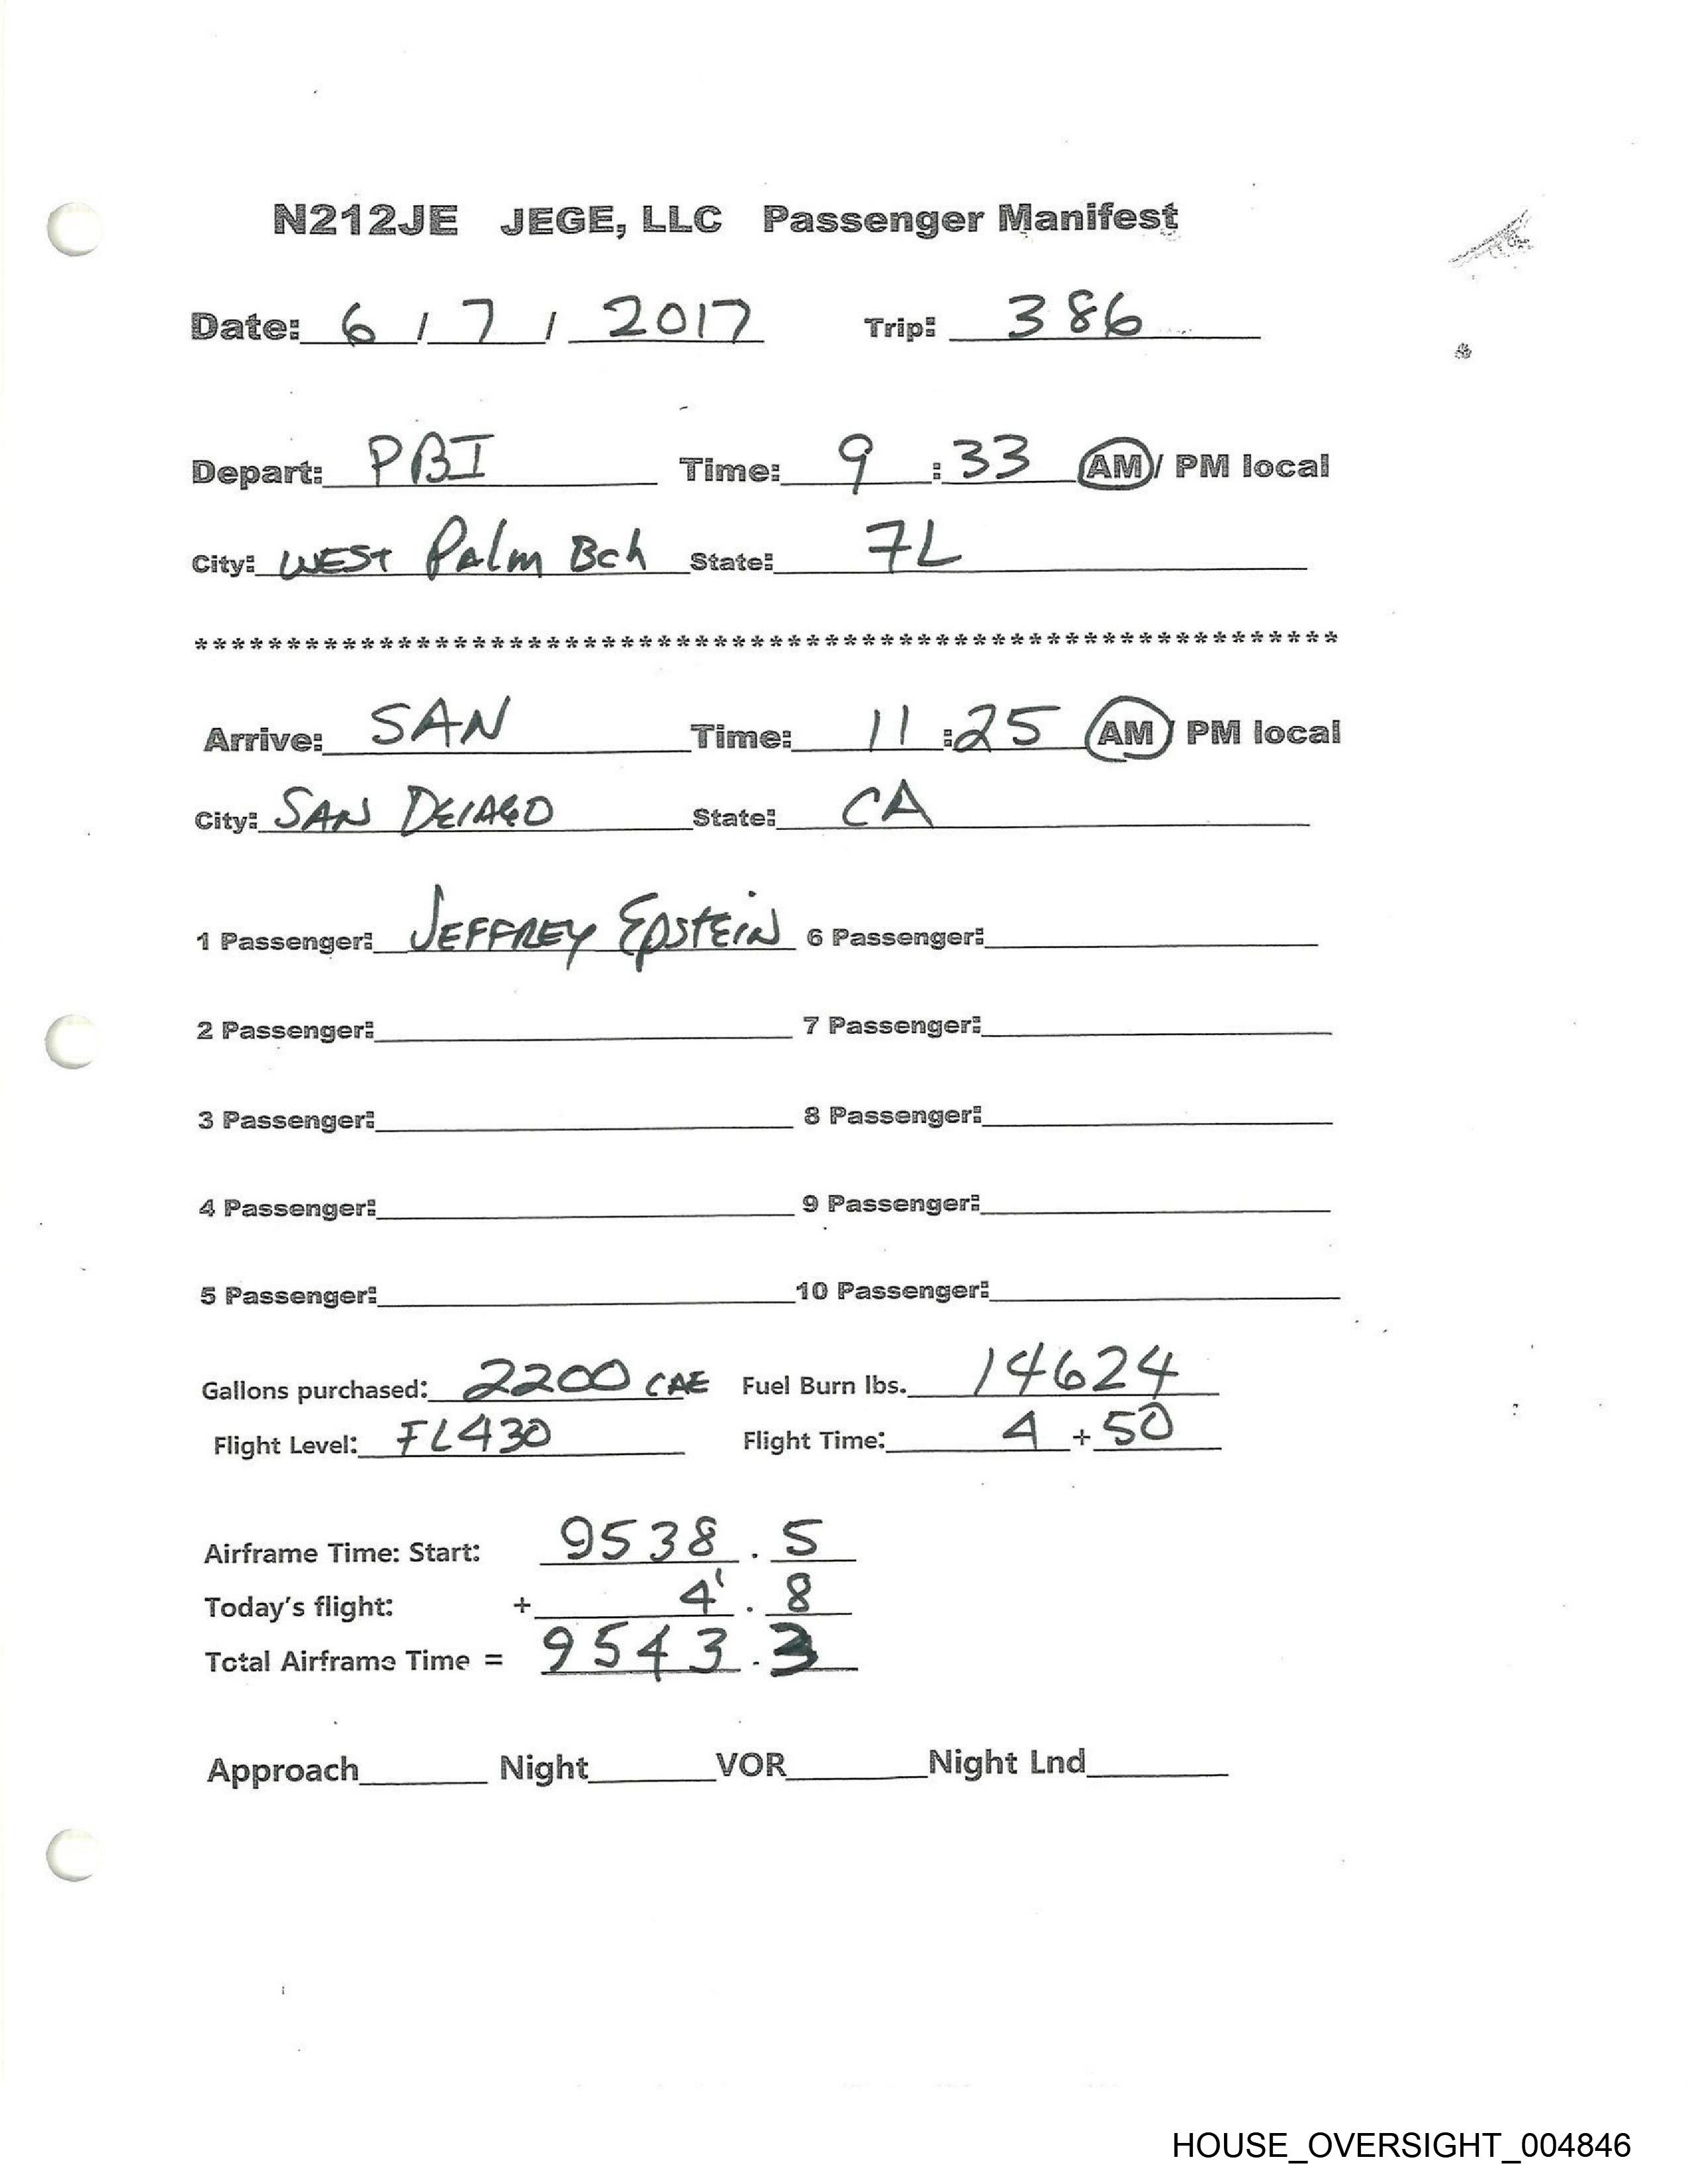 N212JE JEGE, LLC Passenger Manifest
Date: 6 / 7 / 2017 Trip: 386
Depart: PBI Time: 9 : 33 AM / PM local
City: WEST Palm Bch State: FL
**************************************************************
Arrive: SAN Time: 11 : 25 AM / PM local
City: SAN DEIAGO State: CA
1 Passenger: JEFFREY EPSTEIN 6 Passenger:
2 Passenger: 7 Passenger:
3 Passenger: 8 Passenger:
4 Passenger: 9 Passenger:
5 Passenger: 10 Passenger:
Gallons purchased: 2200 CAE Fuel Burn lbs. 14624
Flight Level: FL430 Flight Time: 4 + 50
Airframe Time: Start: 9538 . 5
Today's flight: + 4 . 8
Total Airframe Time = 9543 . 3
Approach Night VOR Night Lnd
HOUSE_OVERSIGHT_004846